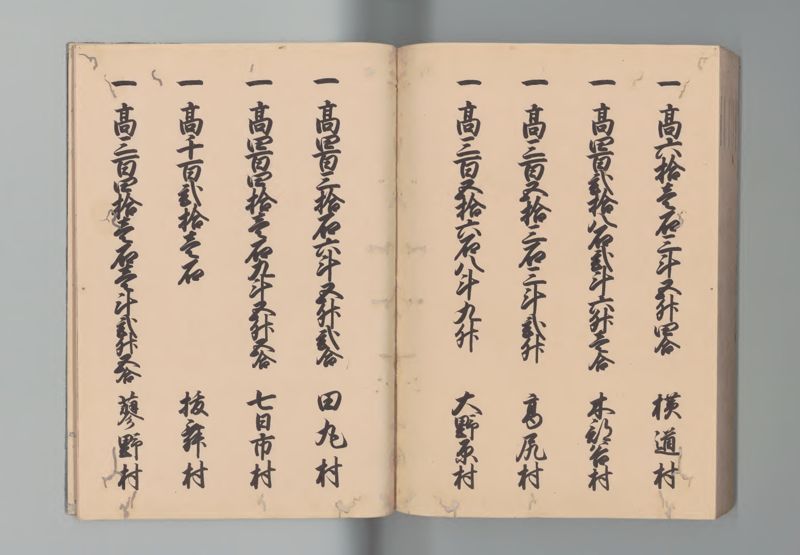 一 高六拾壱石三斗五升四合 横道村
一 高四百弐拾八石弐斗六升壱合 木部谷村
一 高三百五拾三石三斗弐升 高尻村
一 高三百五拾六石八斗九升 大野原村
一 高四百三拾石六斗五升弐合 田丸村
一 高四百四拾壱石九斗五升五合 七日市村
一 高千百弐拾壱石 抜舞村
一 高三百四拾壱石壱斗弐升五合 蓼野村